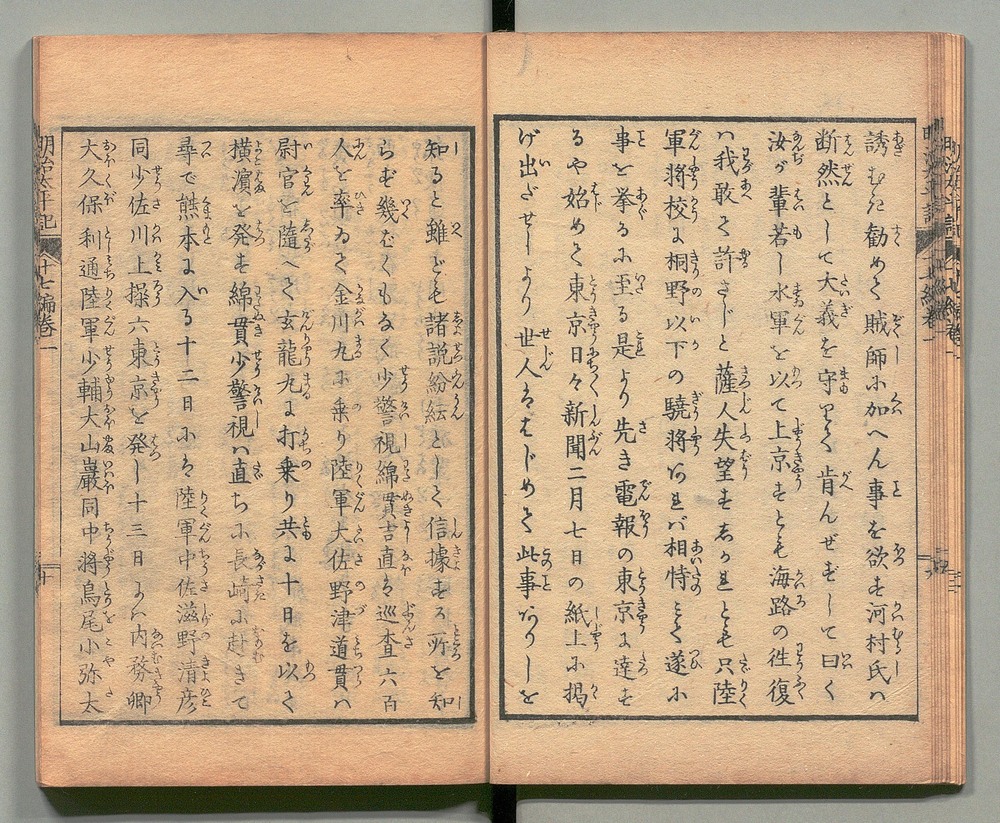 誘むた勧めて賊師小加へん事を欲す河村氏ハ
断然として大義を守りて肯んぜずして曰く
汝が輩若し水軍を以て上京すとも海路の往復
ハ我敢て許さじと薩人失望すされとも只陸
軍将校に桐野以下の驍将あれバ相恃みて遂に
事を挙るに至る是より先き電報の東京に達す
るや始めて東京日々新聞二月七日の紙上に掲
げ出だせしより世人はじめて此事ありしを
知ると雖ども諸説紛紜として信據する所を知
らず幾ばくもなく少警視綿貫吉直は巡査六百
人を率ゐて金川丸に乗り陸軍大佐野津道貫ハ
尉官を隨へて玄龍丸に打乗り共に十日を以て
横濱を発す綿貫少警視ハ直ちに長崎に赴きて
尋で熊本に入る十二日にハ陸軍中佐滋野清彦
同少佐川上操六東京を発し十三日にハ内務卿
大久保利通陸軍少輔大山巖同中将鳥尾小弥太
明治太平記
十七編巻一